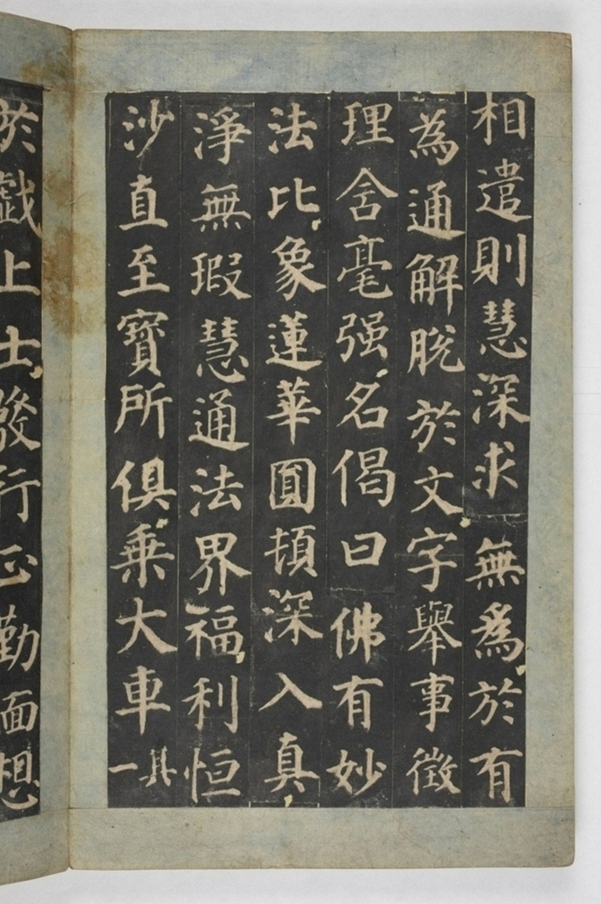 相遣則慧深求無爲於有
為通解脫於文字舉事徵
理含毫强名偈曰佛有妙
法比象蓮華圓頓深入真
淨無瑕慧通法界福利恒
沙直至寶所俱乗大車其一
於戲上士發行正勤面想